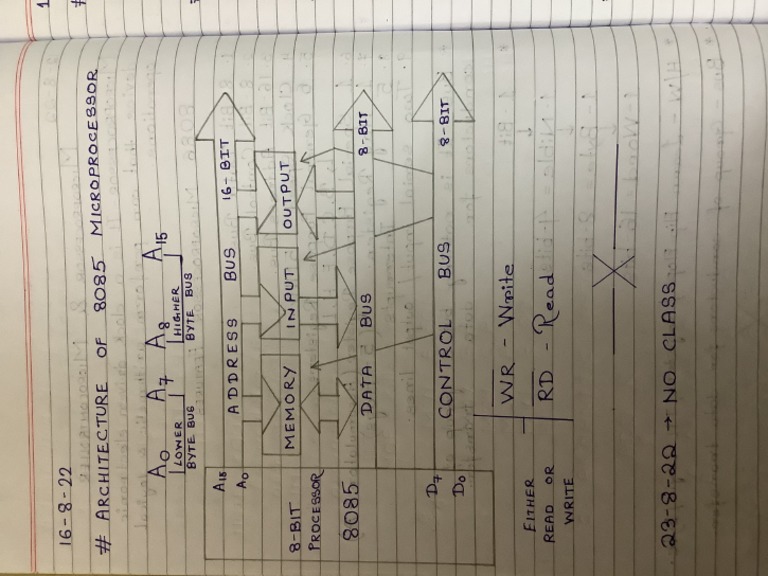 16-8-22
# ARCHITECTURE OF 8085 MICROPROCESSOR
A0 A7 A8 A15
LOWER BYTE BUS
HIGHER BYTE BUS
A15
A0
ADDRESS BUS 16-BIT
8-BIT
PROCESSOR
8085
MEMORY
INPUT
OUTPUT
DATA BUS 8-BIT
D7
D0
CONTROL BUS 8-BIT
EITHER
READ OR
WRITE
W̅R̅ - Write
R̅D̅ - Read
23-8-22 → NO CLASS